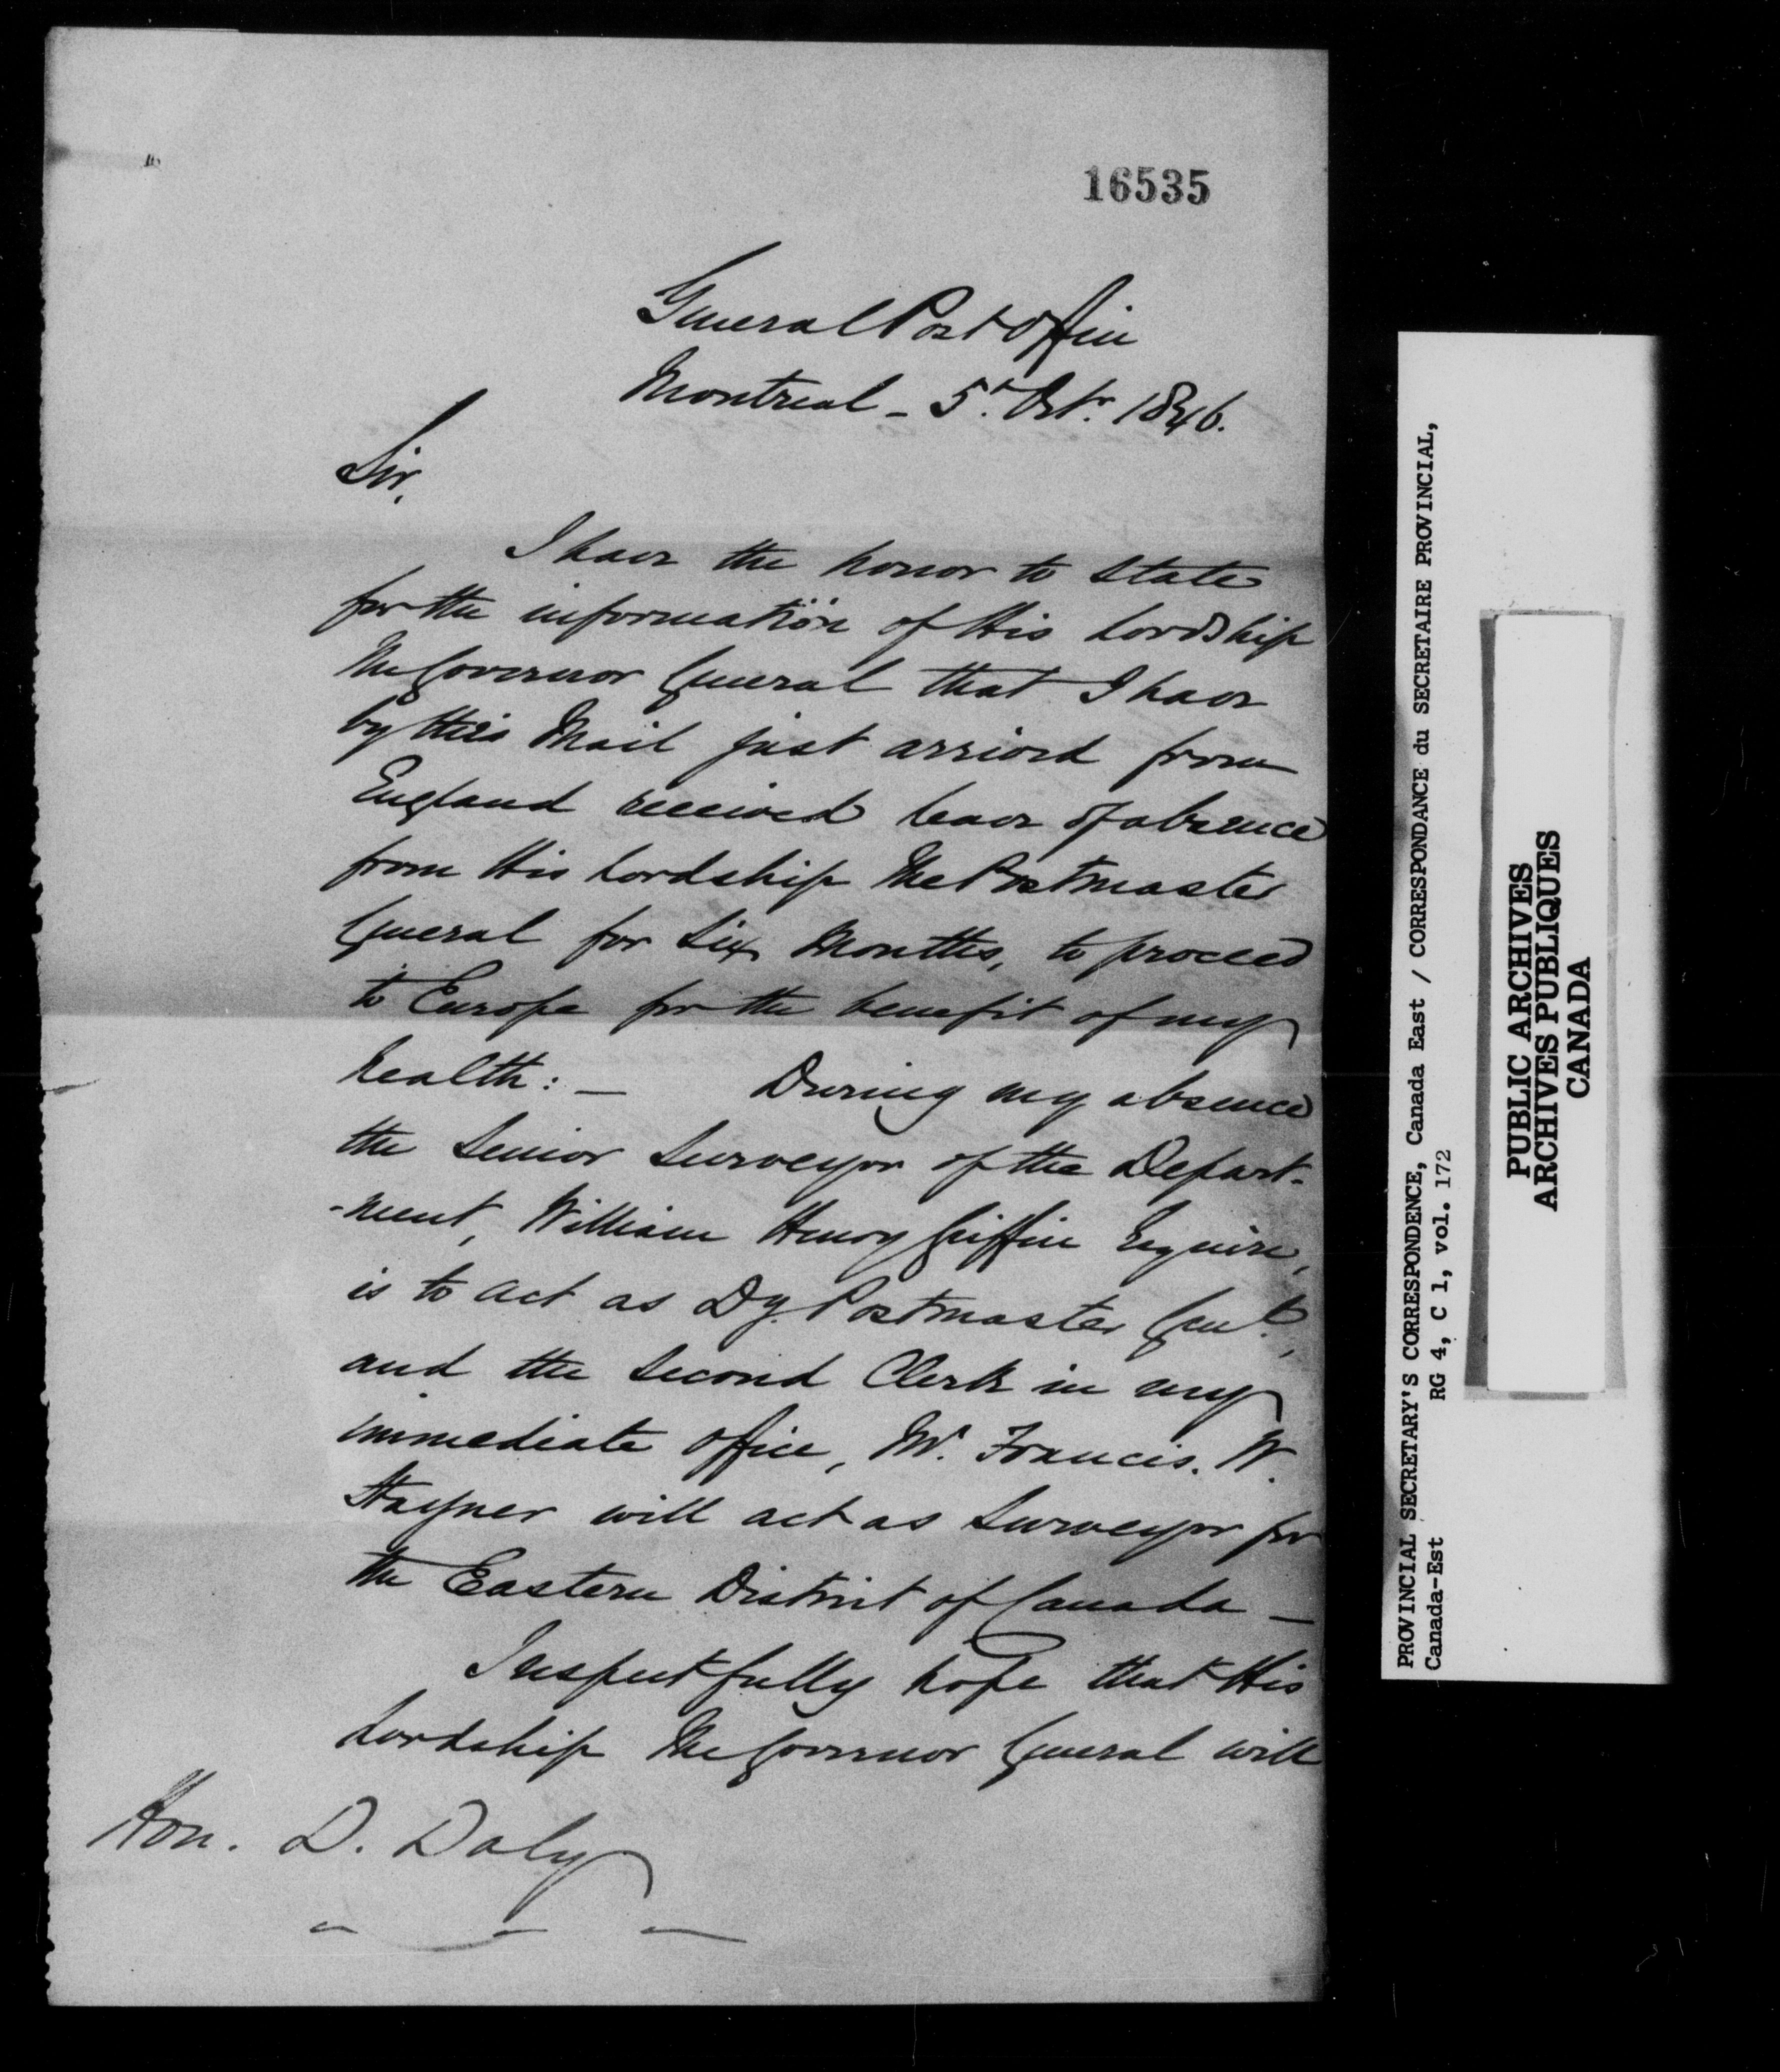 16535
General Post Office
Montreal - 5th Octr. 1846.
Sir,
I have the honor to state
for the information of His Lordship
The Governor General that I have
by the Mail just arrived from
England received leave of absence
from His Lordship The Postmaster
General for Six Months, to proceed
to Europe for the benefit of my
health: — During my absence
the Senior Surveyor of the Depart-
-ment, William Henry Griffin Esquire,
is to act as Dy. Postmaster Genl.,
and the Second Clerk in my
immediate office, Mr. Francis. W.
Stayner will act as Surveyor for
the Eastern District of Canada —
I respectfully hope that His
Lordship The Governor General will
Hon. D. Daly
PROVINCIAL SECRETARY'S CORRESPONDENCE, Canada East / CORRESPONDANCE du SECRETAIRE PROVINCIAL,
Canada-Est RG 4, C 1, vol. 172
PUBLIC ARCHIVES
ARCHIVES PUBLIQUES
CANADA